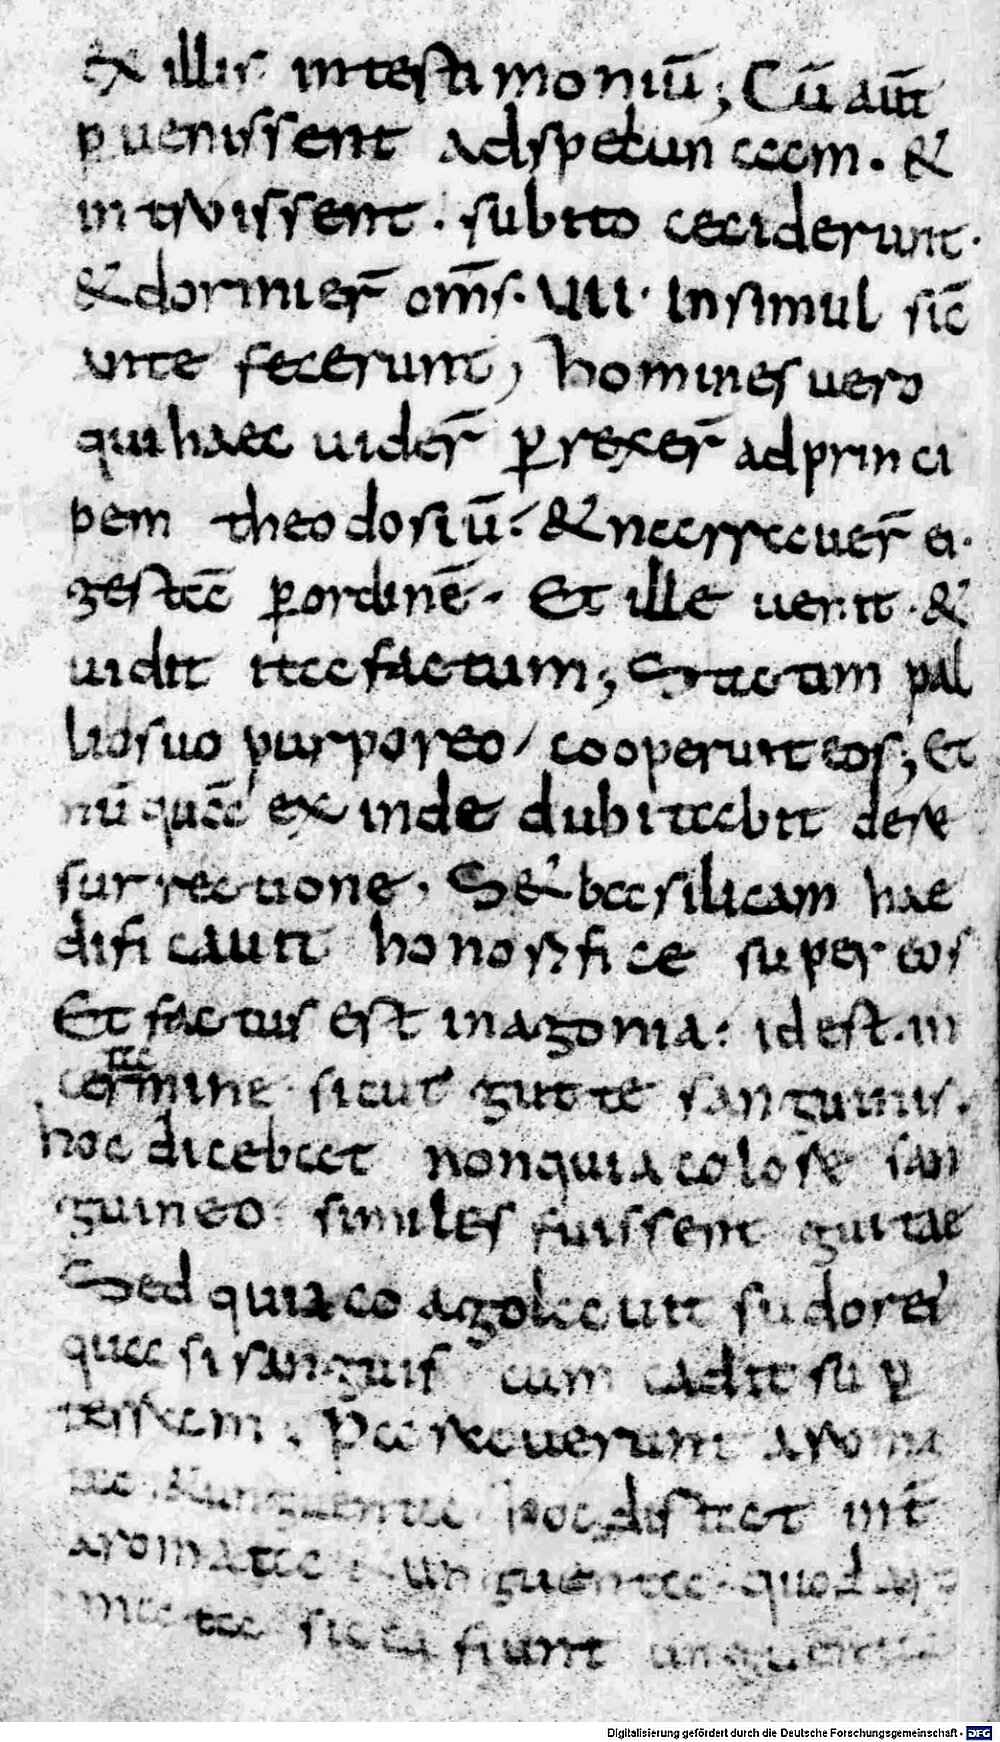 ex illis intestimoniū; Cū aut̄
p̱uenissent adspeluncam. &
introissent. subito ceciderunt.
& dormier̄ om̄s. VII. Insimul sic̄
ante fecerunt, homines uero
qui haec uider̄ p̱rexer̄ ad princi
pem theodosiū. & narrauer̄ ei.
gestā p̱ordinē. Et ille uenit. &
uidit ita factum; Statim pal
lio suo purporeo / cooperuit eos; Et
nū quā ex inde dubitabit de re
surrectione, S& basilicam hae
dificauit honorifice super eos
Et factus est in agonia. id est. in
certamine. sicut gutte sanguinis.
hoc dicebat non quia colore san
guineo similes fuissent guttae
Sed quia co agolauit sudor ei
quasi sanguis cum cadit sup̱
terram. Parauerunt aroma
ta. & unguenta hoc distat int̄
aromata & unguenta. quod aro
mata sicca fiunt unguenta